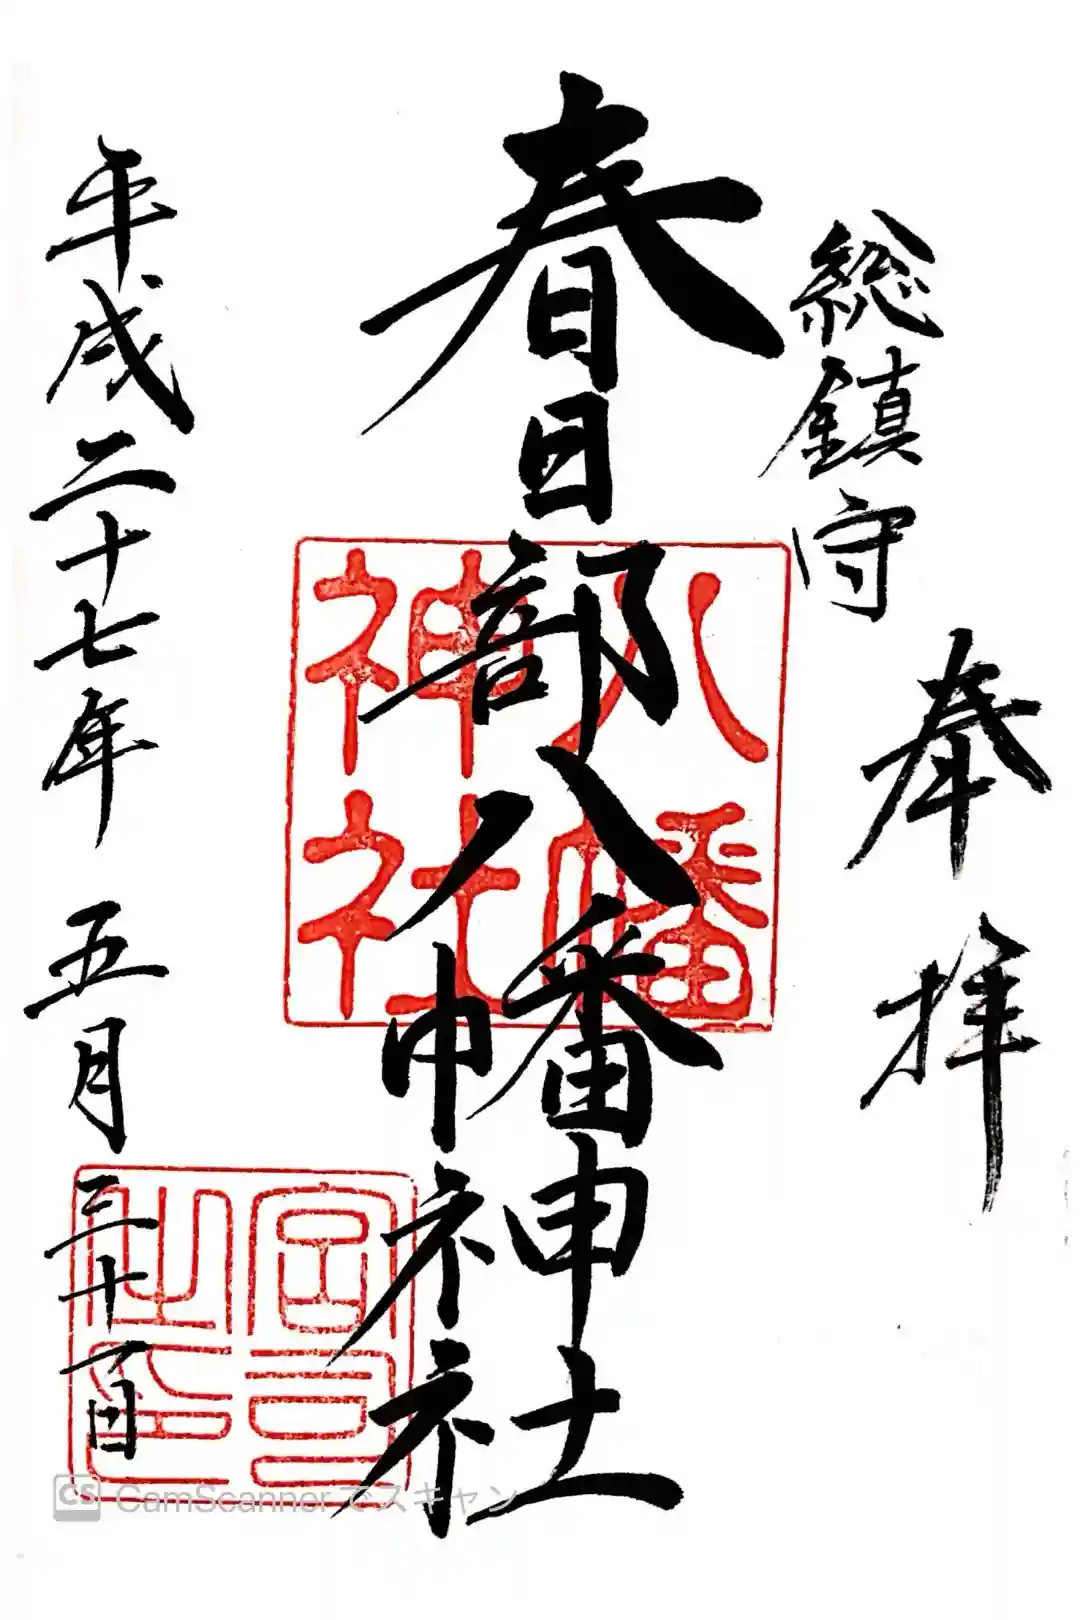 奉拝
総鎮守
春日部八幡神社
八幡
神社
宮司
之印
平成二十七年 五月三十一日
CS CamScanner でスキャン